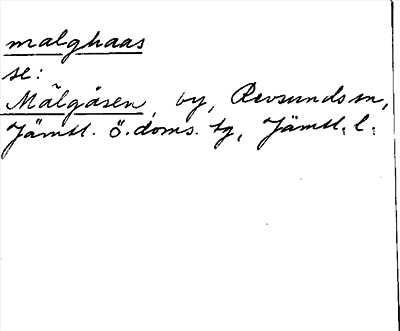 malghaas
se:
Målgåsen, by, Revsunds sn,
Jämtl. ö. doms. tg, Jämtl. l.